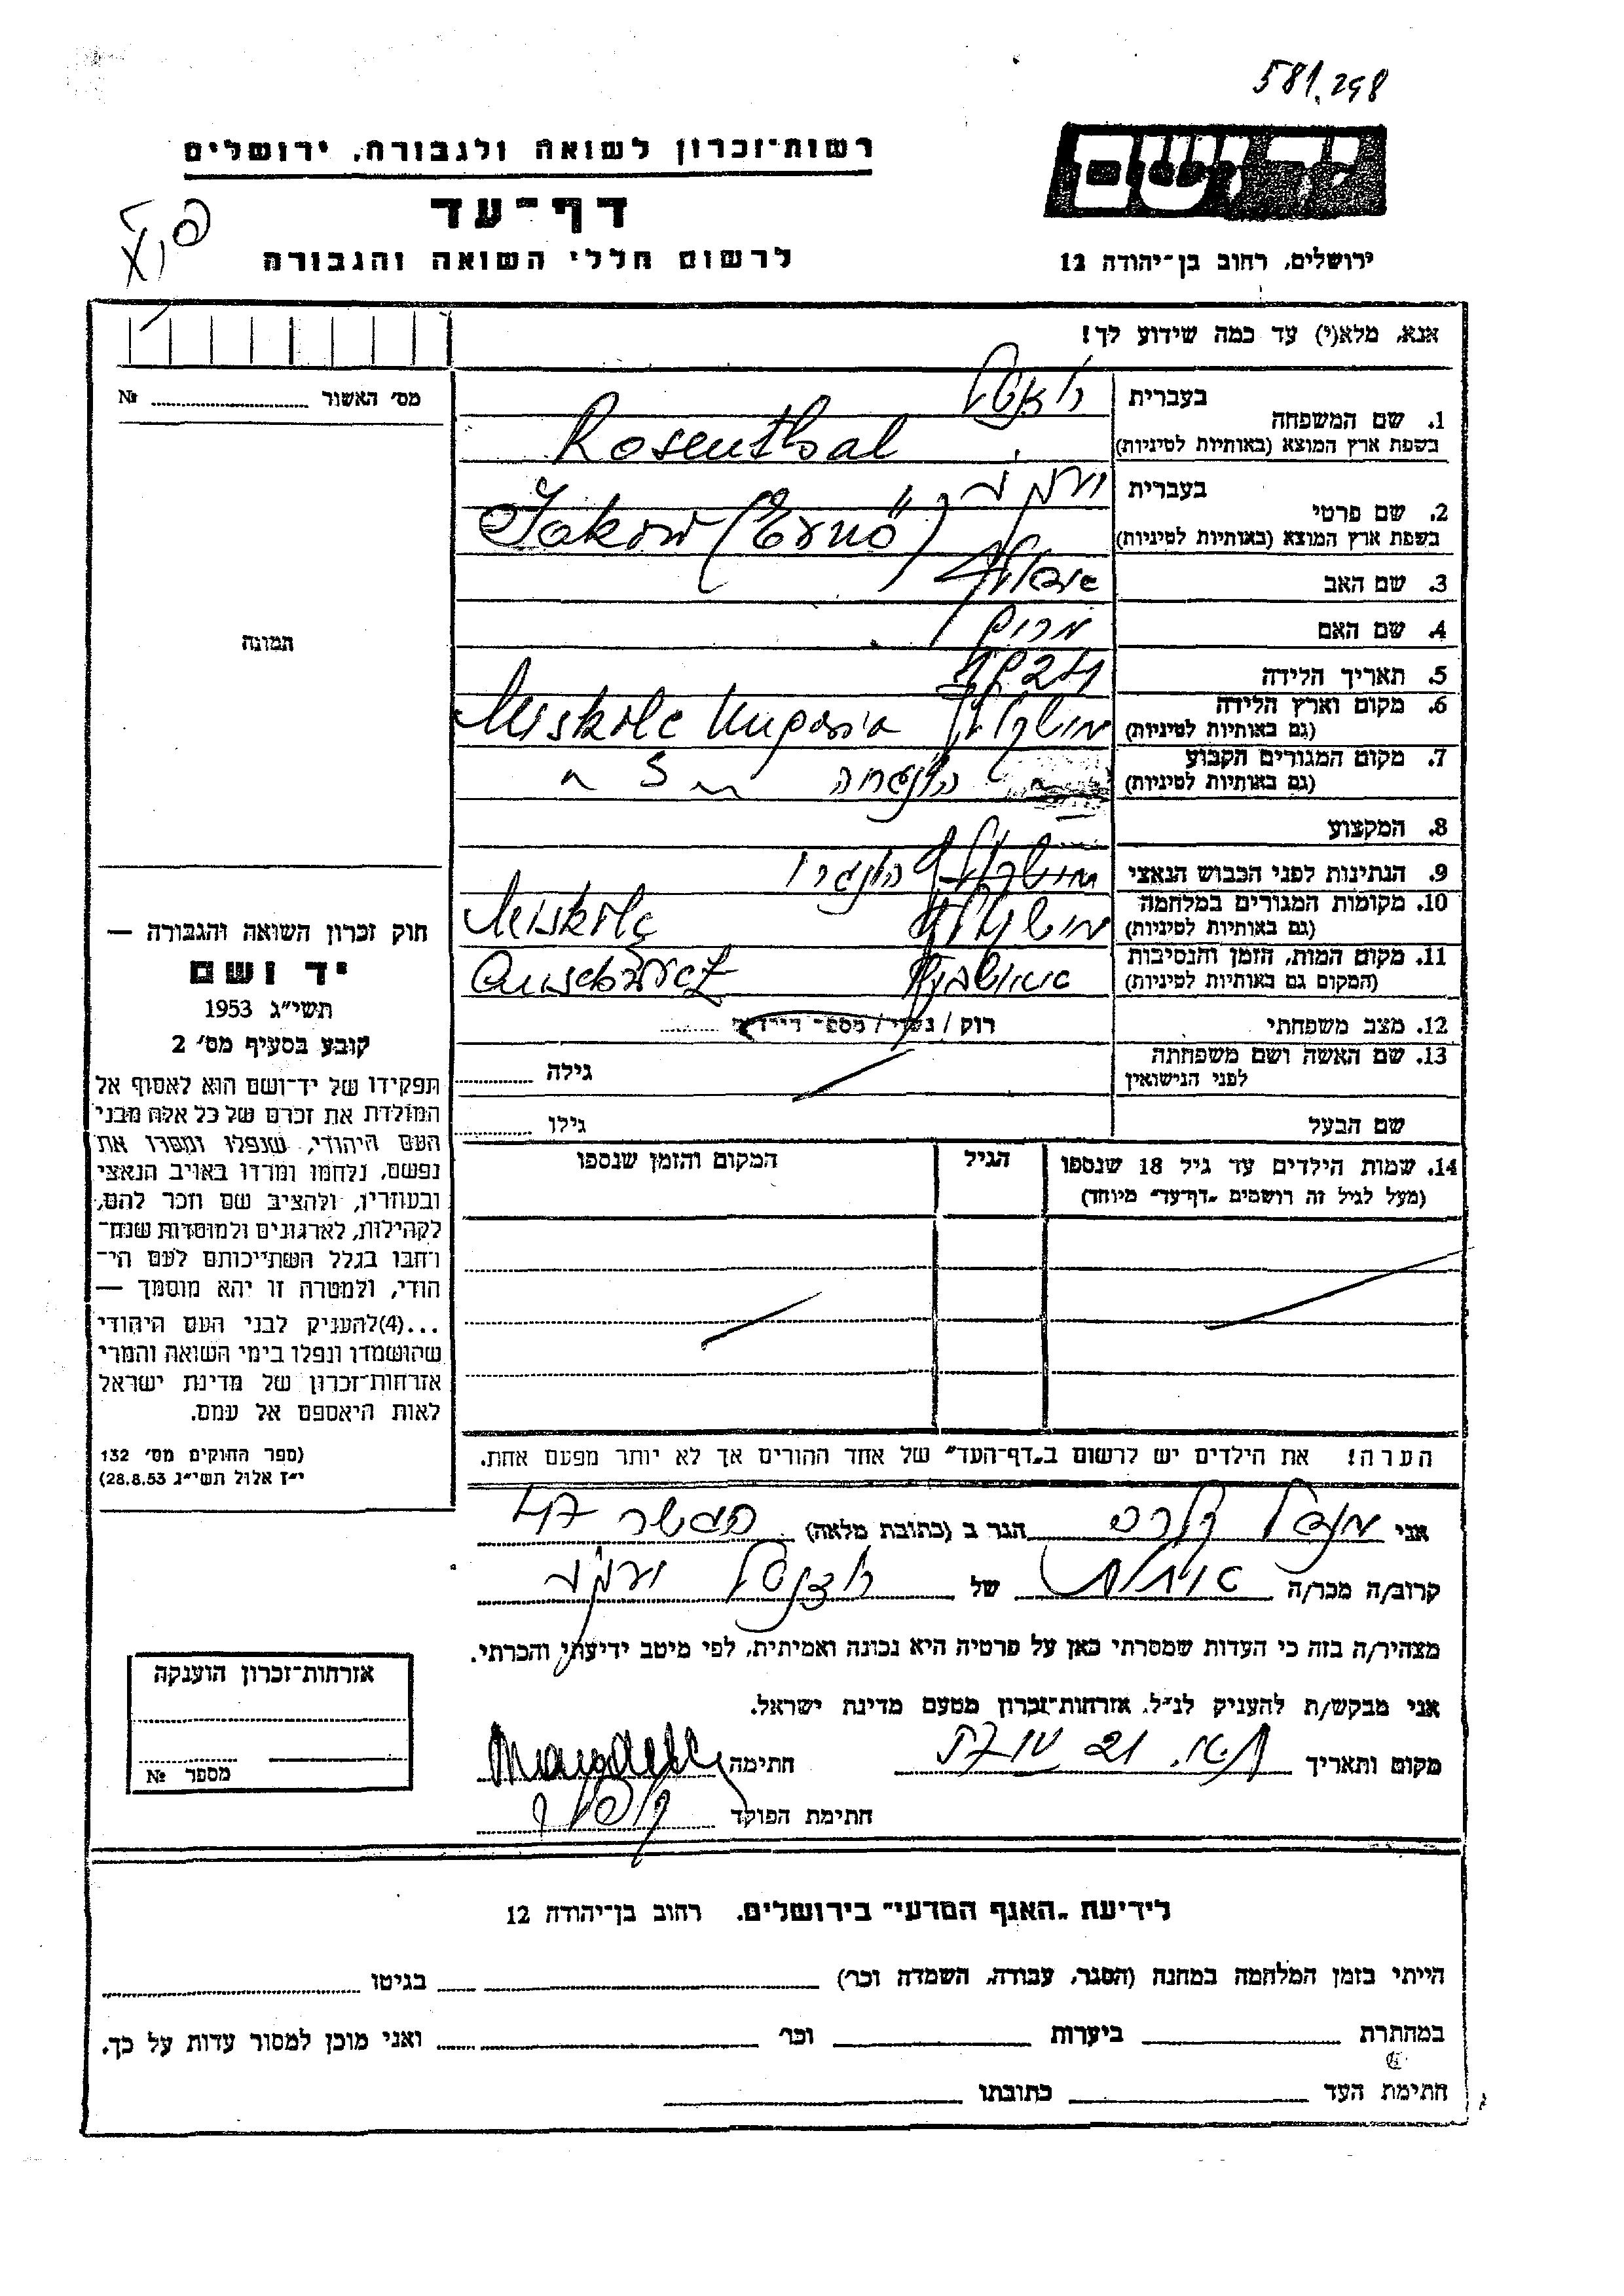 581.298
רשות־זכרון לשואה ולגבורה, ירושלים
יד ושם
דף־עד
לרשום חללי השואה והגבורה
ירושלים, רחוב בן־יהודה 12
אנא, מלא(י) עד כמה שידוע לך!
מס׳ האשור № 
תמונה
1. שם המשפחה בעברית
בשפת ארץ המוצא (באותיות לטיניות) Rosenthal
2. שם פרטי בעברית יעקב
בשפת ארץ המוצא (באותיות לטיניות) Jakow (Ernő)
3. שם האב
4. שם האם מרים
5. תאריך הלידה
6. מקום וארץ הלידה
(גם באותיות לטיניות) מישקולץ Miskolc Ungaria
7. מקום המגורים הקבוע
(גם באותיות לטיניות)
8. המקצוע
9. הנתינות לפני הכבוש הנאצי
10. מקומות המגורים במלחמה
(גם באותיות לטיניות) מישקולץ Miskolc
11. מקום המות, הזמן והנסיבות
(המקום גם באותיות לטיניות) אושוויץ Auschwitz
12. מצב משפחתי רוק / נשוי / מספר הילדים
13. שם האשה ושם משפחתה
לפני הנישואין גילה
שם הבעל גילו
14. שמות הילדים עד גיל 18 שנספו הגיל המקום והזמן שנספו
(מעל לגיל זה רושמים „דף־עד״ מיוחד)
הערה! את הילדים יש לרשום ב„דף־העד״ של אחד ההורים אך לא יותר מפעם אחת.
חוק זכרון השואה והגבורה —
יד ושם
תשי״ג 1953
קובע בסעיף מס׳ 2
תפקידו של יד־ושם הוא לאסוף אל
המולדת את זכרם של כל אלה מבני
העם היהודי, שנפלו ומסרו את
נפשם, נלחמו ומרדו באויב הנאצי
ובעוזריו, ולהציב שם וזכר להם,
לקהילות, לארגונים ולמוסדות שנח־
רחבו בגלל השתייכותם לעם הי־
הודי, ולמטרה זו יהא מוסמך —
...(4)להעניק לבני העם היהודי
שהושמדו ונפלו בימי השואה והמרי
אזרחות־זכרון של מדינת ישראל
לאות היאספם אל עמם.
(ספר החוקים מס׳ 132
י״ז אלול תשי״ג 28.8.53)
אני מנדל קלרה הגר ב (כתובת מלאה)
קרוב/ה מכר/ה אחות של רוזנטל יעקב
מצהיר/ה בזה כי העדות שמסרתי כאן על פרטיה היא נכונה ואמיתית, לפי מיטב ידיעתי והכרתי.
אני מבקש/ת להעניק לנ״ל, אזרחות־זכרון מטעם מדינת ישראל.
מקום ותאריך חתימה
חתימת הפוקד
אזרחות־זכרון הוענקה
מספר №
לידיעת „האגף המדעי״ בירושלים, רחוב בן־יהודה 12
הייתי בזמן המלחמה במחנה (הסגר, עבודה, השמדה וכר׳) בגיטו
במחתרת ביערות וכר׳ ואני מוכן למסור עדות על כך.
חתימת העד כתובתו